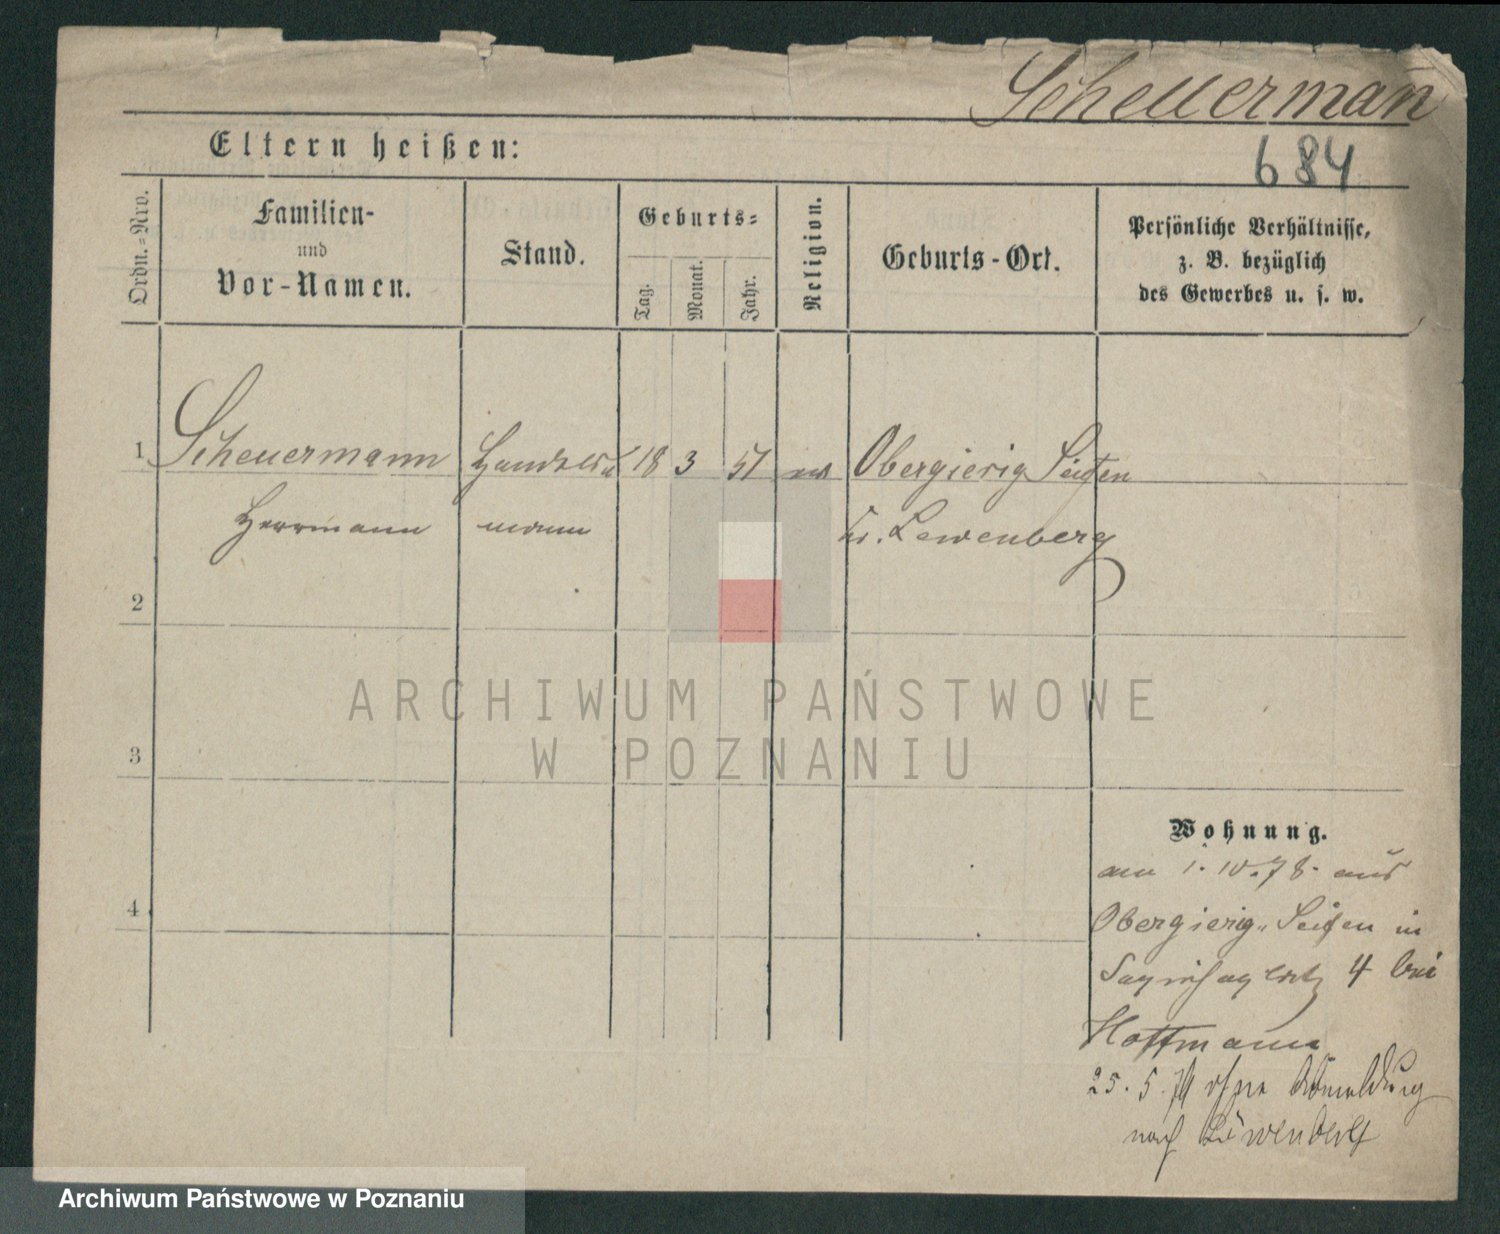 Scheuerman
684
Eltern heißen:
Ordn.-Nro.
Familien-
und
Vor-Namen.
Stand.
Geburts-
Tag.
Monat.
Jahr.
Religion.
Geburts-Ort.
Persönliche Verhältnisse,
z. B. bezüglich
des Gewerbes u. s. w.
1 Scheuermann Handels 18 3 51 ev Obergierig Seifen
Herrmann mann Kr. Lewenberg
2
3
4
ARCHIWUM PAŃSTWOWE
W POZNANIU
Wohnung.
am 1.10.78. aus
Obergierig-Seifen in
4 bei
Hoffmann
25. 5. 79 ohne Abmeldung
nach Löwenberg
Archiwum Państwowe w Poznaniu